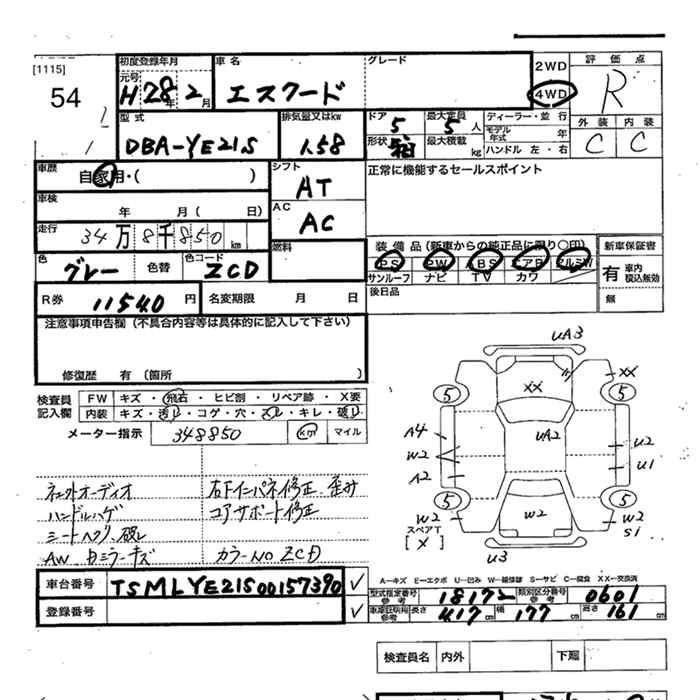 [1115]
54
初度登録年月
元号
H 28年 2月
車名
エスクード
グレード
2WD
4WD
評価点
R
型式
DBA-YE21S
排気量又はkw
1.58
ドア
5
形状
最大定員
5人
最大積載
kg
ディーラー・並行
モデル年式
年
ハンドル 左・右
外装
C
内装
C
車歴
自家用・( )
シフト
AT
正常に機能するセールスポイント
車検
年 月( 日)
AC
AC
走行
34万8千850
km
燃料
色
グレー
色替
色コード
ZCD
装備品(新車からの純正品に限り〇印)
PS PW ABS エアB アルミW
サンルーフ ナビ TV カワ
後日品
新車保証書
有
車内積込無効
無
R券
11540円
名変期限 月 日
注意事項申告欄(不具合内容等は具体的に記入して下さい)
修復歴 有 (箇所 )
検査員記入欄
FW キズ・飛石・ヒビ割・リペア跡・X要
内装 キズ・汚れ・コゲ・穴・スレ・キレ・破れ
メーター指示
348850
km
マイル
ネットオーディオ
ハンドルハゲ
シートヘタリ、破れ
右下インパネ修正、歪み
コアサポート修正
カラーNo ZCD
UA3
XX
XX
5
5
A4
W2
A2
UA2
U2
U1
5
5
W2
W2
W2
S1
U3
スペアT
[ X ]
A-キズ E-エクボ U-凹み W-補修跡 S-サビ C-腐食 XX-交換済
車台番号
TSMLYE21S00157390
✓
登録番号
✓
型式指定番号
参考
18172
類別区分番号
参考
0601
車庫証明用
参考
長さ
417cm
幅
177cm
高さ
161cm
検査員名
内外
下廻